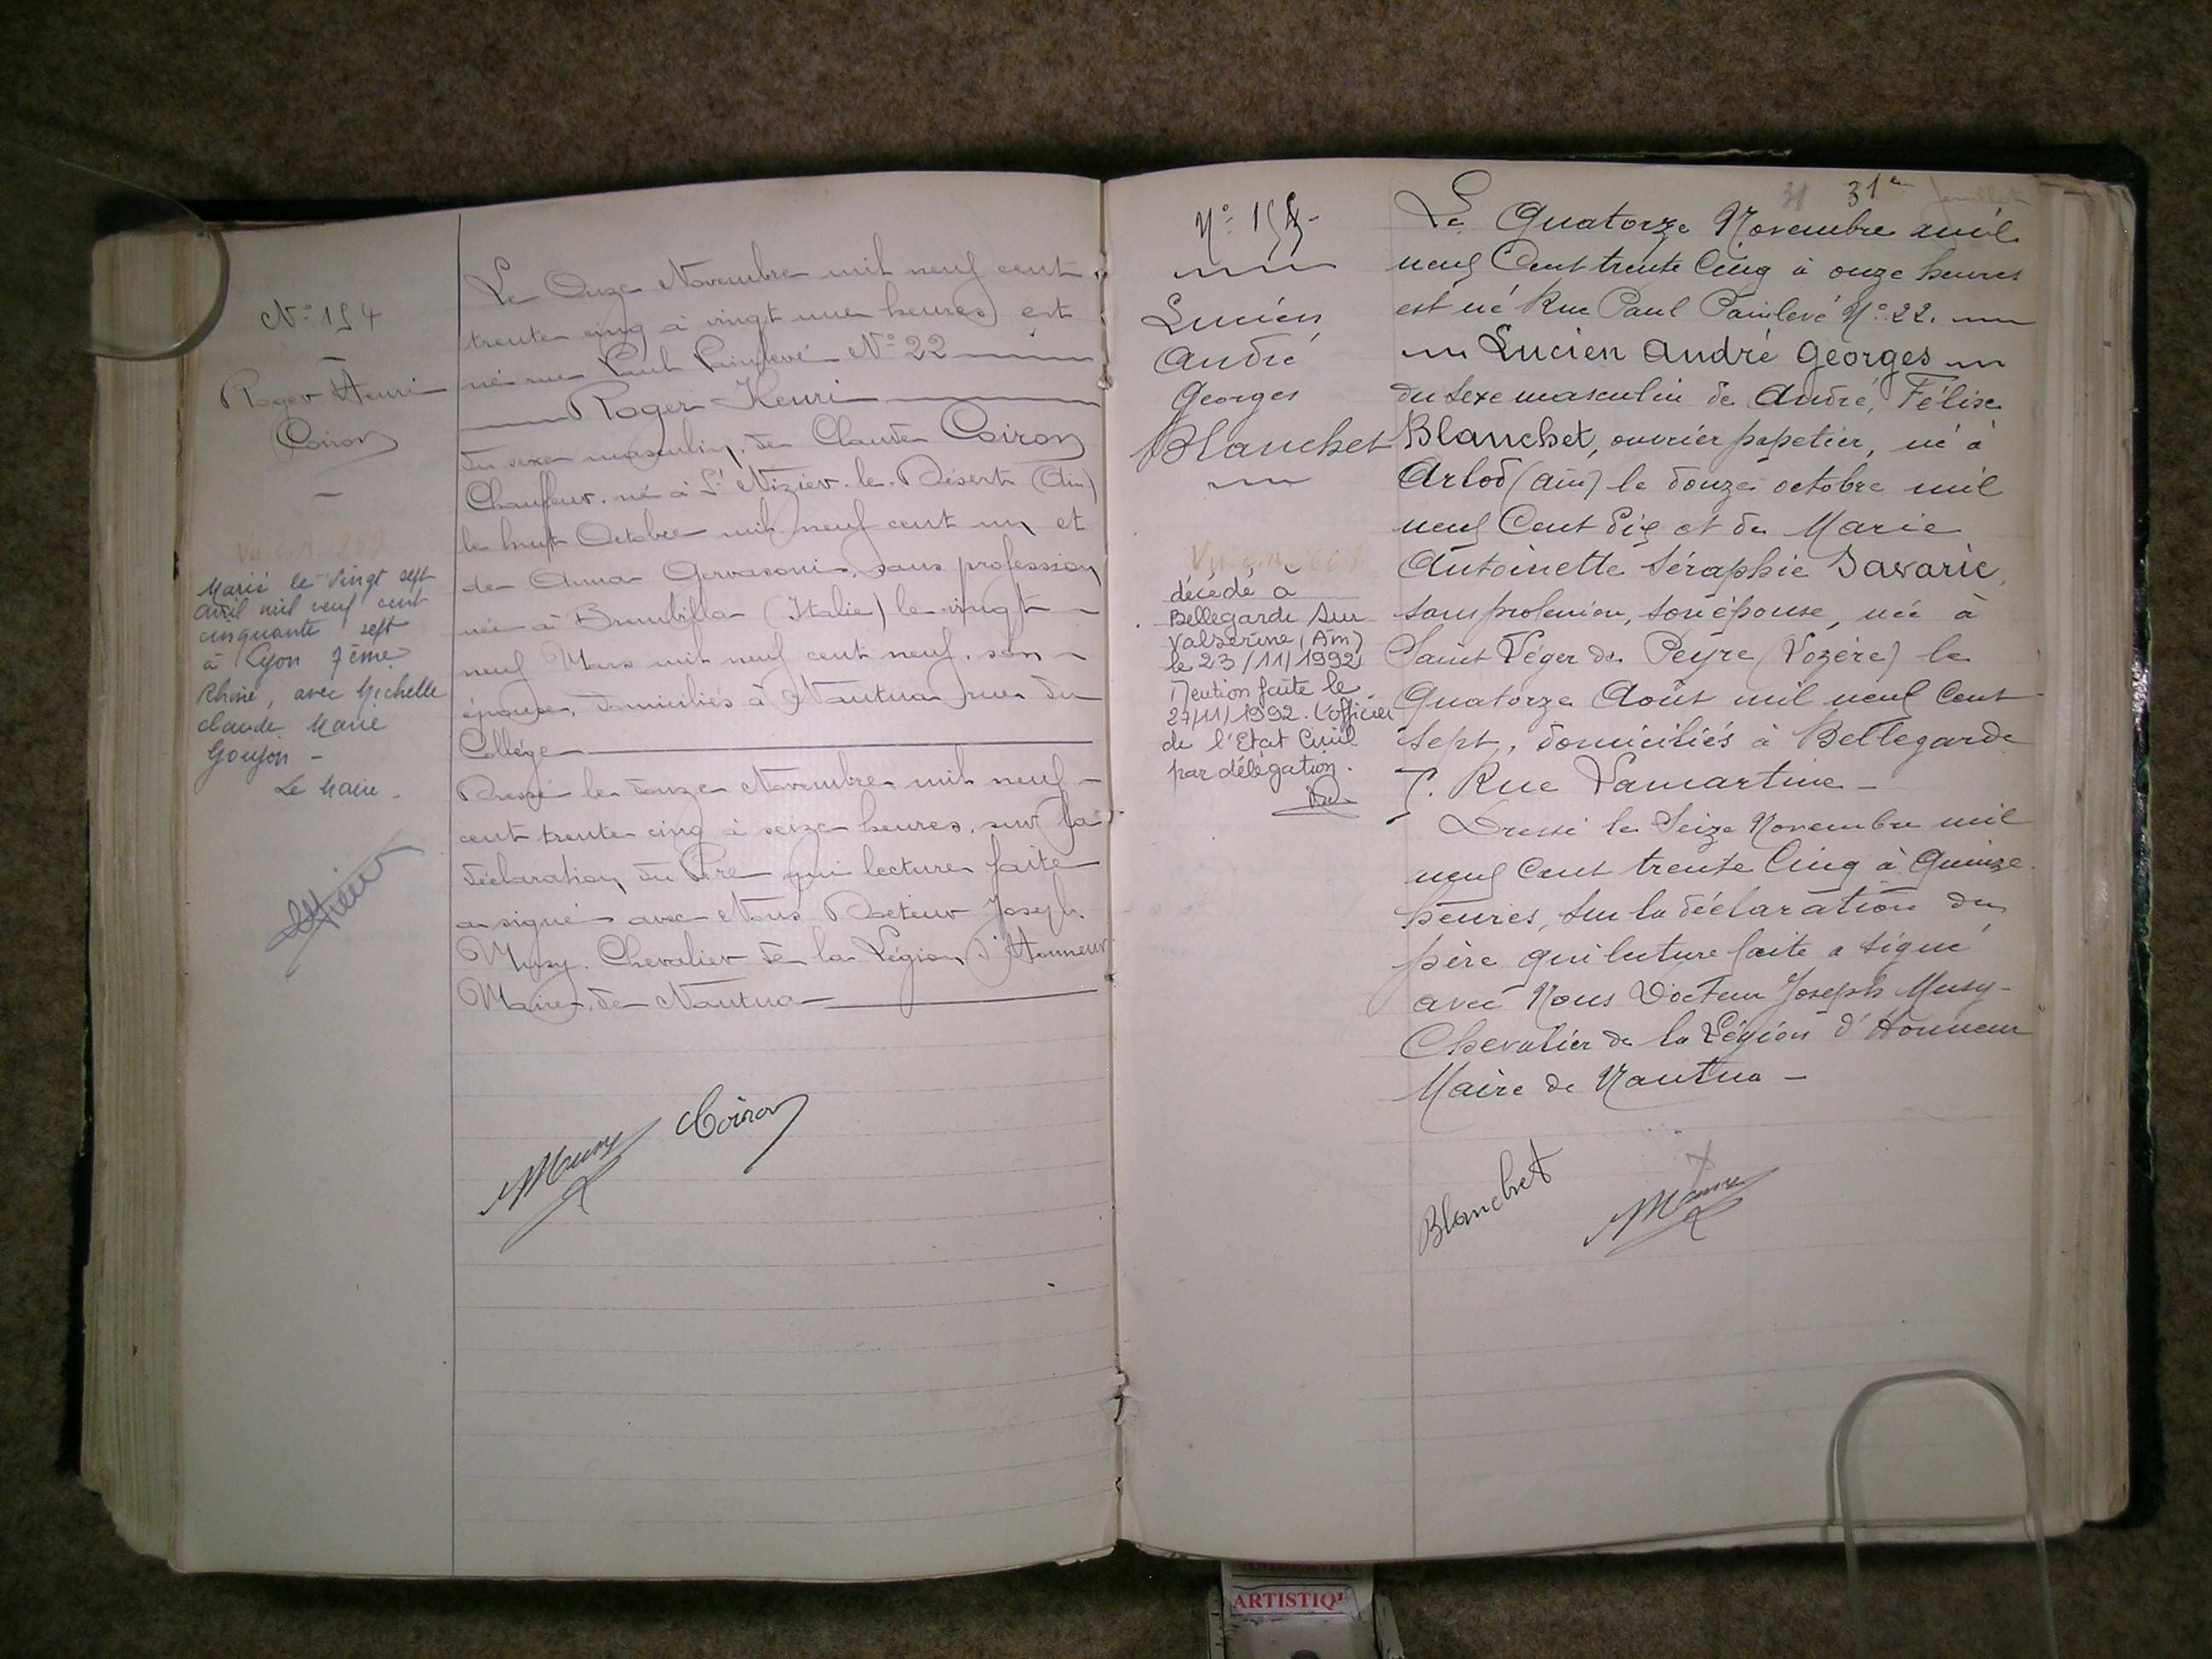 N° 154
Roger Henri
Coiron
Marié le Vingt sept
avril mil neuf cent
cinquante sept
à Lyon 7ème
Rhône, avec Michelle
Claude Marie
Goujon -
Le Maire.
Le Onze Novembre mil neuf cent
trente cinq à vingt une heures est
né rue Paul Painlevé N° 22
Roger Henri
du sexe masculin, de Claude Coiron
Chauffeur. né à St Nizier-le-Désert (Ain)
le huit Octobre mil neuf cent un et
de Anna Gervasoni, sans profession
née à Brembilla (Italie) le vingt
neuf Mars mil neuf cent neuf, son
épouse, domiciliés à Nantua rue du
Collège
Dressé le douze Novembre mil neuf
cent trente cinq à seize heures, sur la
déclaration du Père qui lecture faite
a signé avec Nous Docteur Joseph
Musy. Chevalier de la Légion d'Honneur
Maire, de Nantua
Musy Coiron
N° 155
Lucien
André
Georges
Blanchet
décédé à
Bellegarde sur
Valserine (Ain)
le 23/11/1992
Mention faite le
27/11/1992. L'officier
de l'Etat Civil
par délégation.
31 31e feuillet
Le Quatorze Novembre mil
neuf Cent trente Cinq à onze heures
est né Rue Paul Painlevé N° 22.
Lucien André Georges
du sexe masculin de André, Félix
Blanchet, ouvrier papetier, né à
Arlod (Ain) le douze octobre mil
neuf Cent dix et de Marie
Antoinette Séraphie Savarie,
sans profession, son épouse, née à
Saint Léger de Peyre (Lozère) le
Quatorze Août mil neuf Cent
sept, domiciliés à Bellegarde
7. Rue Lamartine -
Dressé le Seize Novembre mil
neuf Cent trente Cinq à Quinze
heures, sur la déclaration du
père qui lecture faite a signé
avec Nous Docteur Joseph Musy-
Chevalier de la Légion d'Honneur
Maire de Nantua -
Blanchet Musy
ARTISTIQU